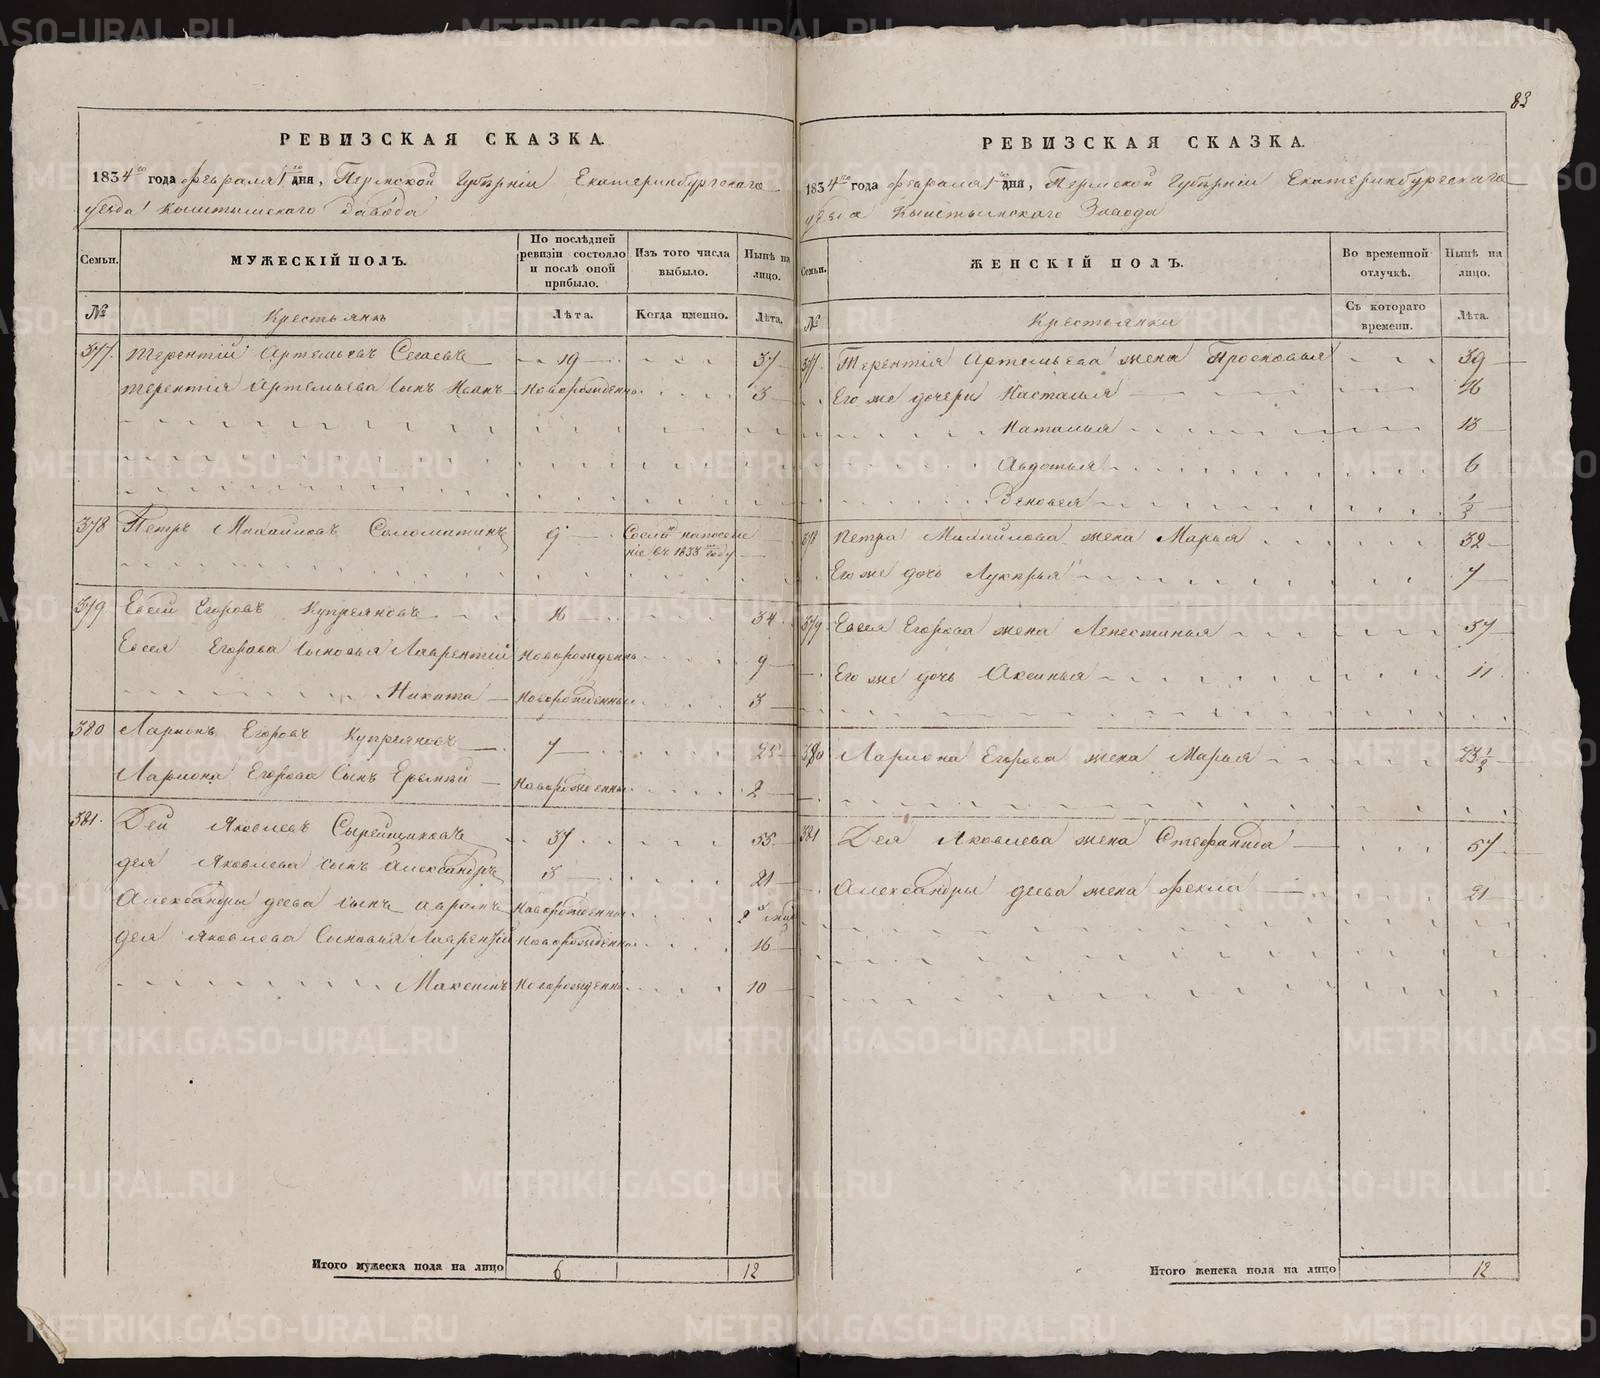 83
РЕВИЗСКАЯ СКАЗКА.
1834го года февраля 1го дня, Пермской Губерніи Екатеринбургскаго
уезда Кыштымскаго Завода
Семьи. МУЖЕСКІЙ ПОЛЪ. По послѣдней ревизіи состояло и послѣ оной прибыло. Изъ того числа выбыло. Нынѣ на лицо.
№ Крестьянъ Лѣта. Когда именно. Лѣта.
377. Терентій Артемьевъ 19 37
Терентія Артемьева сынъ Иванъ Новорожденъ 3
378 Петръ Михайловъ Соломатинъ 9 Сосланъ на поселе
ніе въ 1833м году
379 Евсей Егоровъ Купреяновъ 16 34
Евсея Егорова сыновья Лаврентий Новорожденъ 9
Никита Новорожденный 3
380 Ларионъ Егоровъ Купреяновъ 7 25
Лариона Егорова сынъ Новорожденны 2
381. Дей Яковлевъ Сырейщиковъ 37 55
Дея Яковлева сынъ Александръ 3 21
Александры деева сынъ Новорожденны 2
Дея Яковлева сыновья Лаврентий Новорожденны 16
Максимъ Новорожденъ 10
Итого мужеска пола на лицо 6 12
РЕВИЗСКАЯ СКАЗКА.
1834го года февраля 1го дня, Пермской Губерніи Екатеринбургскаго
уезда Кыштымскаго Завода
Семьи. ЖЕНСКІЙ ПОЛЪ. Во временной отлучкѣ. Нынѣ на лицо.
№ Крестьянки Съ котораго времени. Лѣта.
377 Терентія Артемьева жена Просковья 39
Его же дочери Насталья 16
Наталья 13
Авдотья 6
1/2
378 Петра Михайлова жена Марья 32
Его же дочь Лукерья 7
379 Евсея Егорова жена 37
Его же дочь Аксинья 11
380 Лариона Егорова жена Марья 23 1/2
381 Дея Яковлева жена Стефанида 57
Александры деева жена Фекла 21
Итого женска пола на лицо 12
METRIKI.GASO-URAL.RU